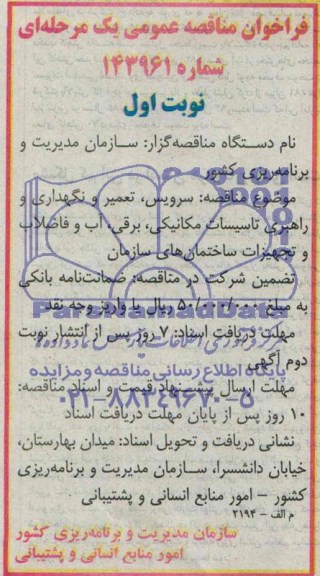 فراخوان مناقصه عمومی یک مرحله‌ای
شماره ۱۴۳۹۶۱
نوبت اول
نام دستگاه مناقصه‌گزار: سازمان مدیریت و
برنامه‌ریزی کشور
موضوع مناقصه: سرویس، تعمیر و نگهداری و
راهبری تاسیسات مکانیکی، برقی، آب و فاضلاب
و تجهیزات ساختمان‌های سازمان
تضمین شرکت در مناقصه: ضمانت‌نامه بانکی
به مبلغ ۵۰/۰۰۰/۰۰۰ ریال یا واریز وجه نقد
ParsNamadData
مهلت دریافت اسناد: ۷ روز پس از انتشار نوبت
دوم آگهی
پایگاه اطلاع رسانی مناقصه و مزایده
مهلت ارسال پیشنهاد قیمت و اسناد مناقصه:
۰۲۱-۸۸۳۴۹۶۷۰-۵
۱۰ روز پس از پایان مهلت دریافت اسناد
نشانی دریافت و تحویل اسناد: میدان بهارستان،
خیابان دانشسرا، سازمان مدیریت و برنامه‌ریزی
کشور - امور منابع انسانی و پشتیبانی
م الف - ۲۱۹۴
سازمان مدیریت و برنامه‌ریزی کشور
امور منابع انسانی و پشتیبانی